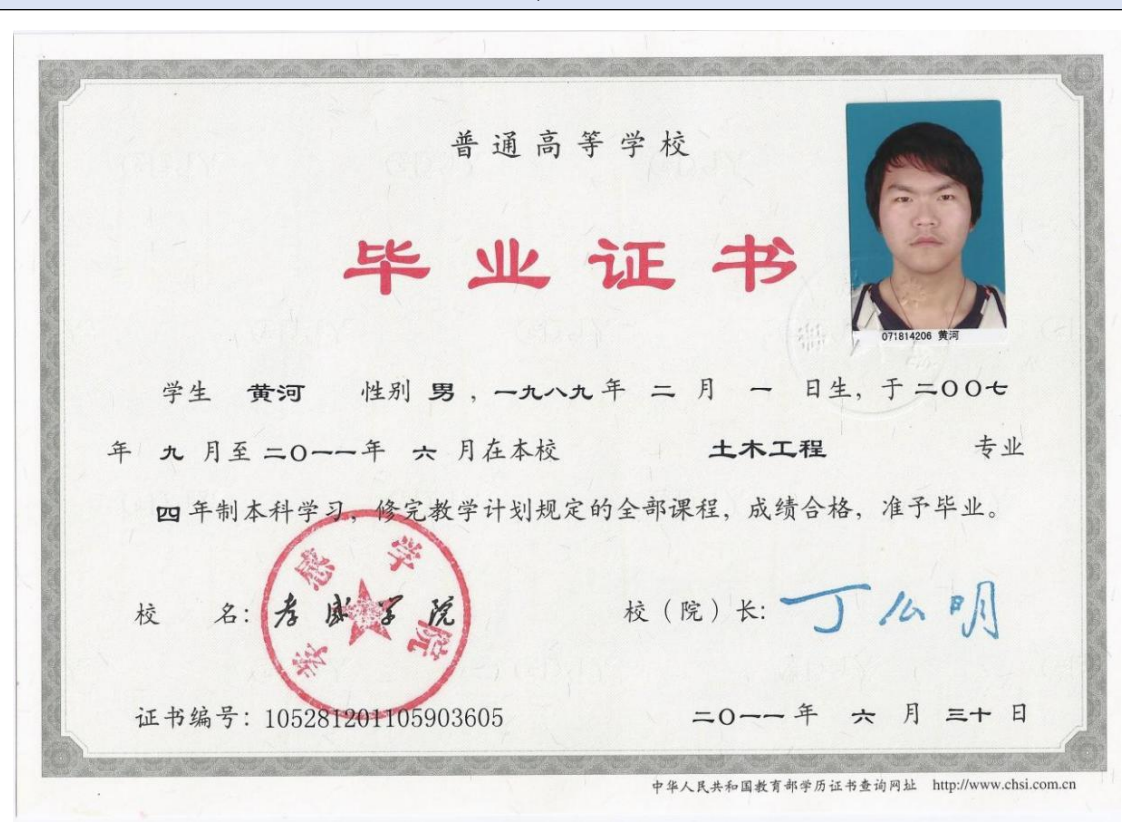 普通高等学校
毕业证书
071814206 黄河
学生 黄河 性别 男，一九八九年 二 月 一 日生，于 二〇〇七
年 九 月至 二〇一一年 六 月在本校 土木工程 专业
四年制本科学习，修完教学计划规定的全部课程，成绩合格，准予毕业。
孝感学院
校 名：孝感学院 校（院）长：丁么明
证书编号：105281201105903605 二〇一一年 六 月 三十 日
中华人民共和国教育部学历证书查询网址 http://www.chsi.com.cn